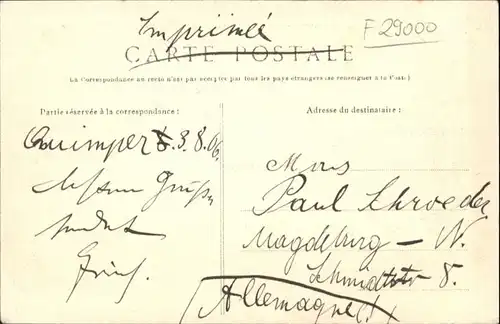 Imprimée
F 29000
CARTE POSTALE
(La Correspondance au recto n'est pas acceptée par tous les pays étrangers (se renseigner à la Poste)
Partie réservée à la correspondance :
Quimper 3.8.06.
Besten Gruss
sendet
Adresse du destinataire :
Mons
Paul Schroeder
Magdeburg - N.
Schmidtstr 8.
Allemagne!